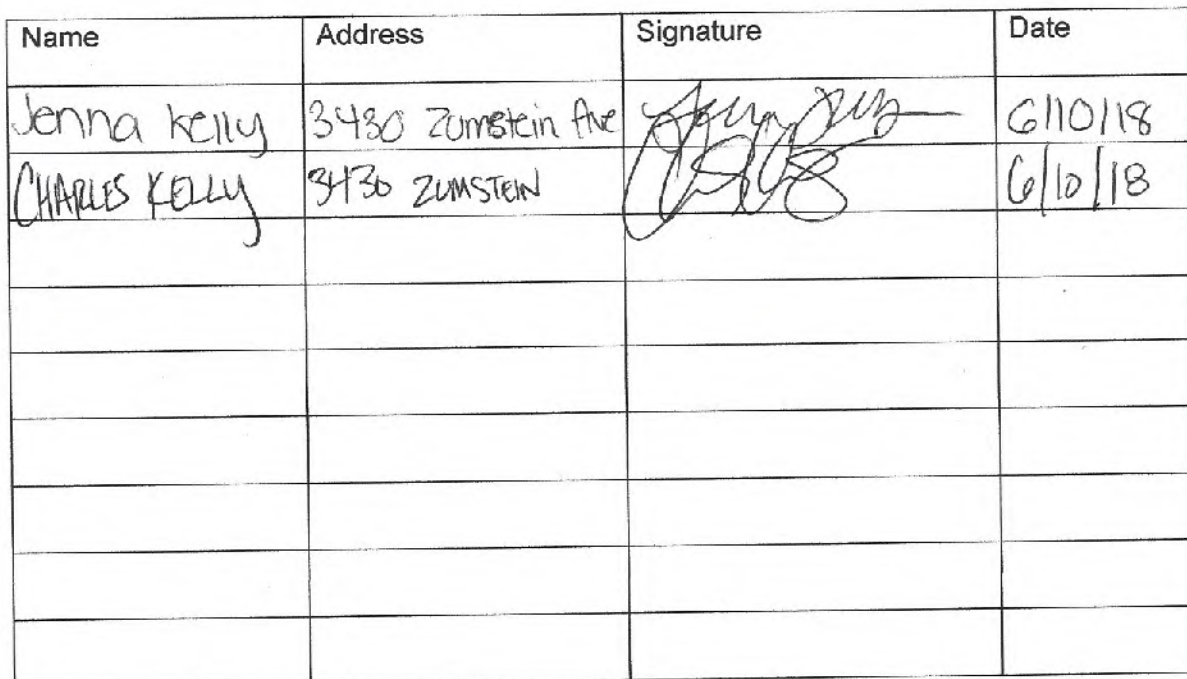 Name Address Signature Date
Jenna Kelly 3430 Zumstein Ave 6/10/18
CHARLES KELLY 3430 ZUMSTEIN 6/10/18